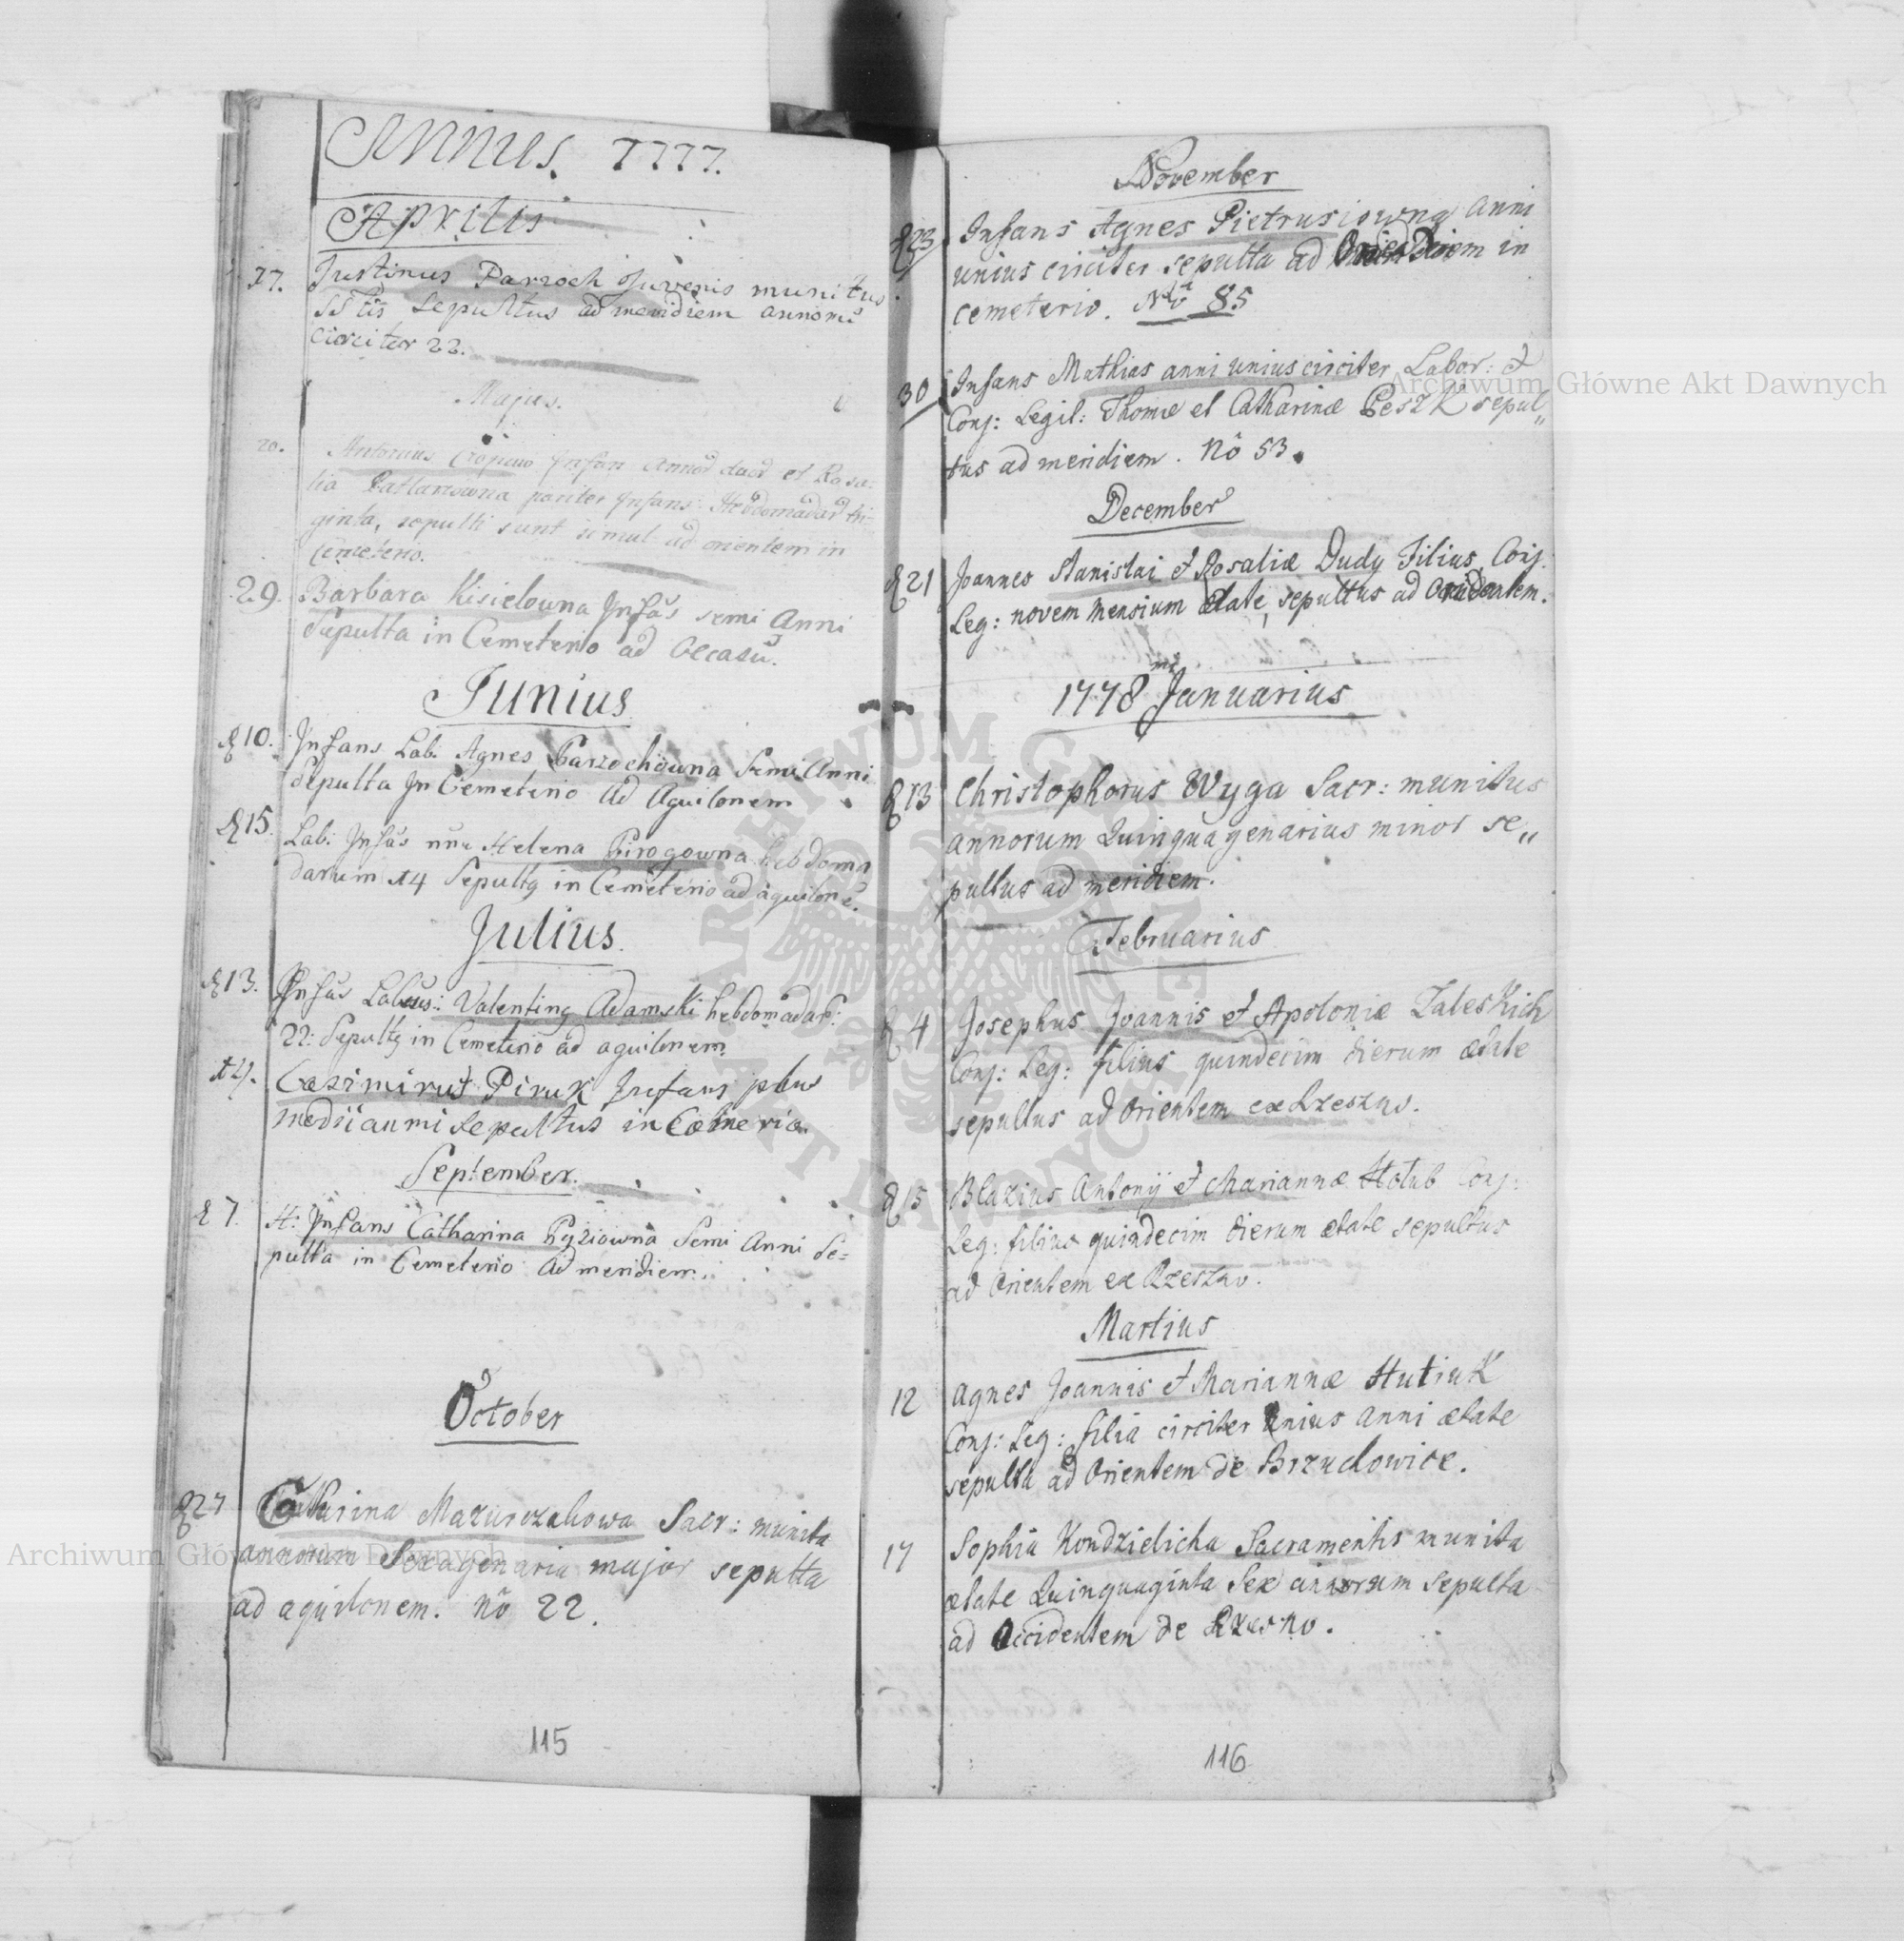 Annus. 1777.
Aprilis
27. Justinus Parzoch Juvenis munitus
SStis Sepultus ad meridiem annorũ
Circiter 22.
Majus.
20. Antonius Infans Annor̃ duor̃ et Rosa-
lia pariter Infans Hebdomadar̃ tri-
ginta, sepulti sunt simul ad orientem in
Cemeterio.
29. Barbara Kisielowna Infãs semi Anni
Sepulta in Cemeterio ad Occasũ.
Junius
10. Infans Lab. Agnes Parzochowna Semi Anni
Sepulta In Cemeterio Ad Aquilonem
15. Lab: Infãs Helena Pirogowna hebdoma
darum 14 Sepulta in Cemeterio ad aquilonẽ.
Julius.
13. Infãs Valentinus Adamski hebdomadar:
22: Sepultus in Cemeterio ad aquilonem
Casimirus Piruk Infans plus
medii anni Sepultus in
September.
7. H: Infans Catharina Pyziowna Semi Anni Se-
pulta in Cemeterio Ad meridiem.
October
27 Catharina Mazurczakowa Sacr: munita
annorum Sexagenaria major sepulta
ad aquilonem. Nõ 22.
115
November
23 Infans Agnes Pietrusiowna Anni
unius circiter sepulta ad in
cemeterio. Nõ 85
30 Infans Mathias anni unius circiter Labor: et
Conj: Legit: Thomæ et Catharinæ Peszk sepul„
tus ad meridiem. Nõ 53.
December
21 Joannes Stanislai et Rosaliæ Dudy Filius, Conj.
Leg: novem mensium ætate, sepultus ad
1778 Januarius
13 Christophorus Wyga Sacr: munitus
annorum Quinquagenarius minor se„
pultus ad meridiem.
Februarius
4 Josephus Joannis et Apoloniæ Zaleskich
Conj: Leg: filius quindecim dierum ætate
sepultus ad Orientem ex Rzeszno.
15 Blazius Antonÿ et Mariannæ Holub Conj:
Leg: filius quindecim dierum ætate sepultus
ad Orientem ex Rzeszno.
Martius
12 Agnes Joannis et Mariannæ Hutiuk
Conj: Leg: filia circiter Unius anni ætate
sepulta ad Orientem de Brzuchowice.
17 Sophia Kondzielicha Sacramentis munita
ætate Quinquaginta Sex annorum Sepulta
ad Occidentem de Rzesno.
116
Archiwum Główne Akt Dawnych
Archiwum Główne Akt Dawnych
ARCHIWUM GŁÓWNE AKT DAWNYCH